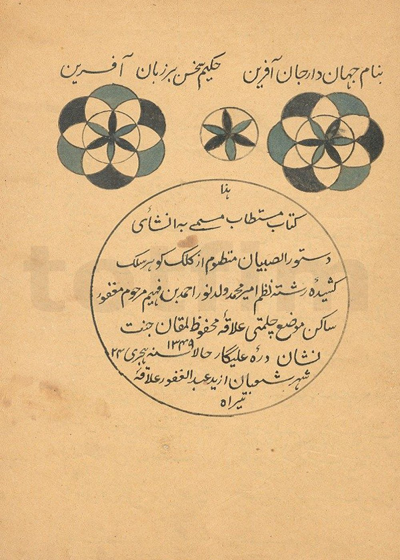 بنام جهان دار جان آفرین حکیم سخن بر زبان آفرین
هذا
کتاب مستطاب مسمی به انشای
دستور الصبیان منظوم از کلک گوهر سلک
کشیدهٔ رشته نظم امیر محمد ولد نور احمد بن فهیم مرحوم مغفور
ساکن موضع چلمتی علاقهٔ محفوظ لمقان جنت
نشان درهٔ علیگار حالا سنه هجری ۱۳۴۹ ۲۴
شهر شعبان از ید عبد الغفور علاقهٔ
تیراه